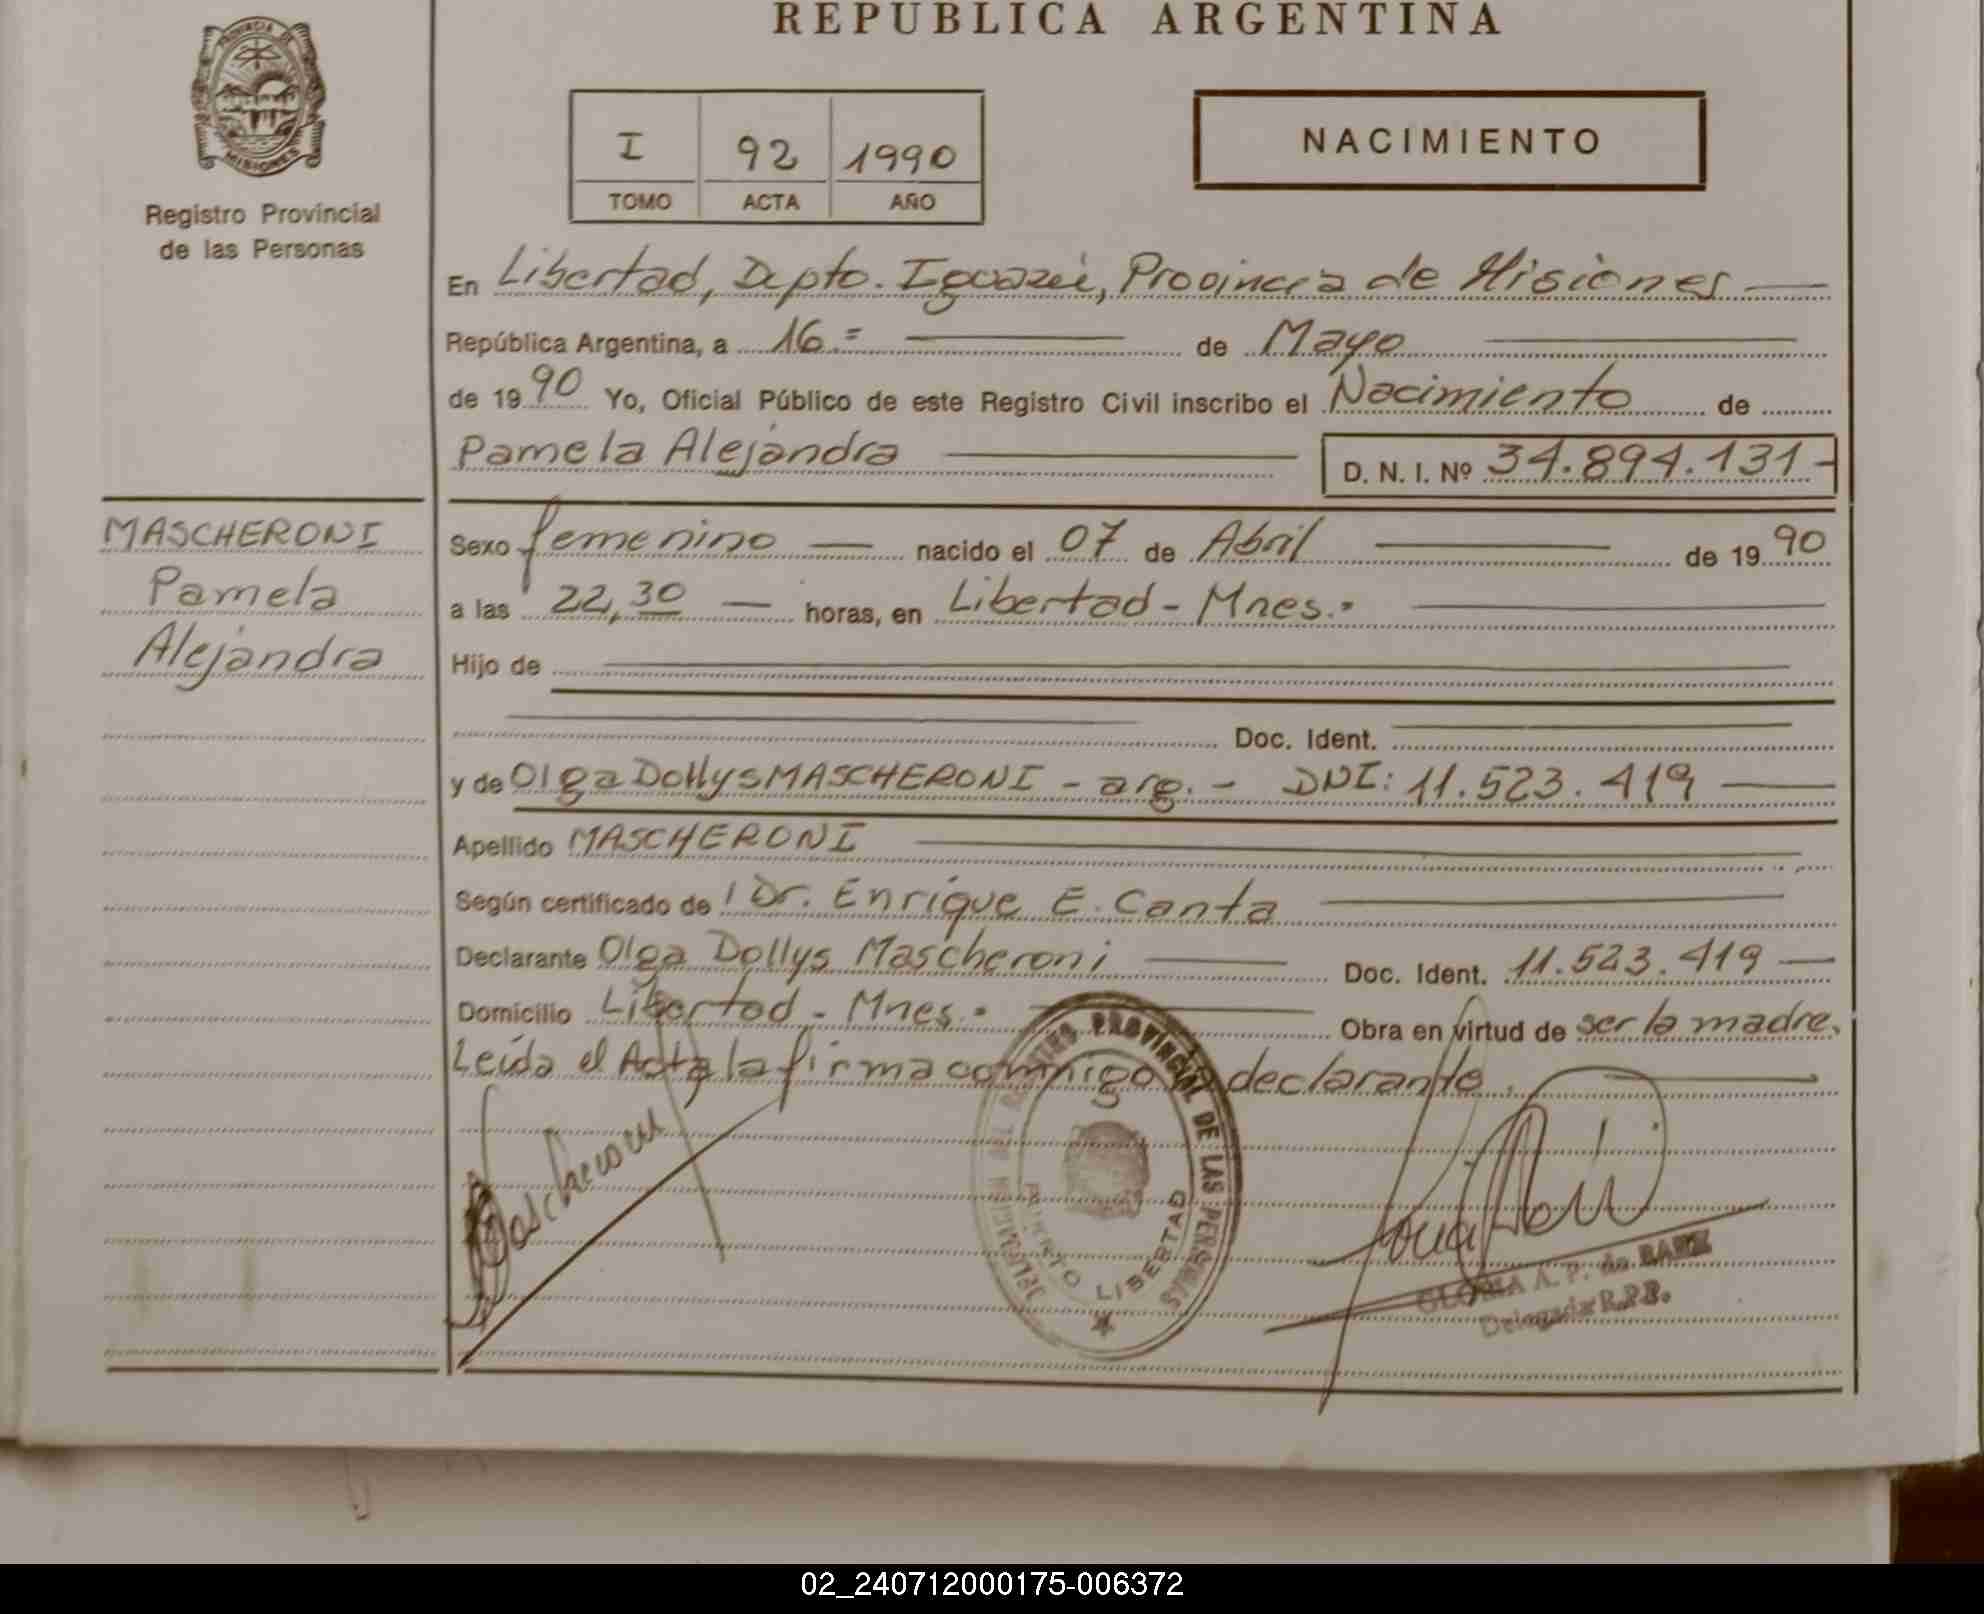 REPUBLICA ARGENTINA
PROVINCIA DE
MISIONES
Registro Provincial
de las Personas
I 92 1990
TOMO ACTA AÑO
NACIMIENTO
En Libertad, Dpto. Iguazú, Provincia de Misiones
República Argentina, a 16.= de Mayo
de 1990 Yo, Oficial Público de este Registro Civil inscribo el Nacimiento de
Pamela Alejandra D. N. I. Nº 34.894.131-
MASCHERONI
Pamela
Alejandra
Sexo femenino nacido el 07 de Abril de 1990
a las 22,30 horas, en Libertad - Mnes.-
Hijo de
Doc. Ident.
y de Olga Dollys MASCHERONI - arg. - DNI: 11.523.419
Apellido MASCHERONI
Según certificado de Dr. Enrique E. Canta
Declarante Olga Dollys Mascheroni Doc. Ident. 11.523.419
Domicilio Libertad - Mnes.- Obra en virtud de ser la madre.
Leída el Acta la firma conmigo la declarante.
Mascheroni
PROVINCIAL DE LAS PERSONAS
LIBERTAD
GLORIA A. P. de
Delegada R.P.P.
02_240712000175-006372